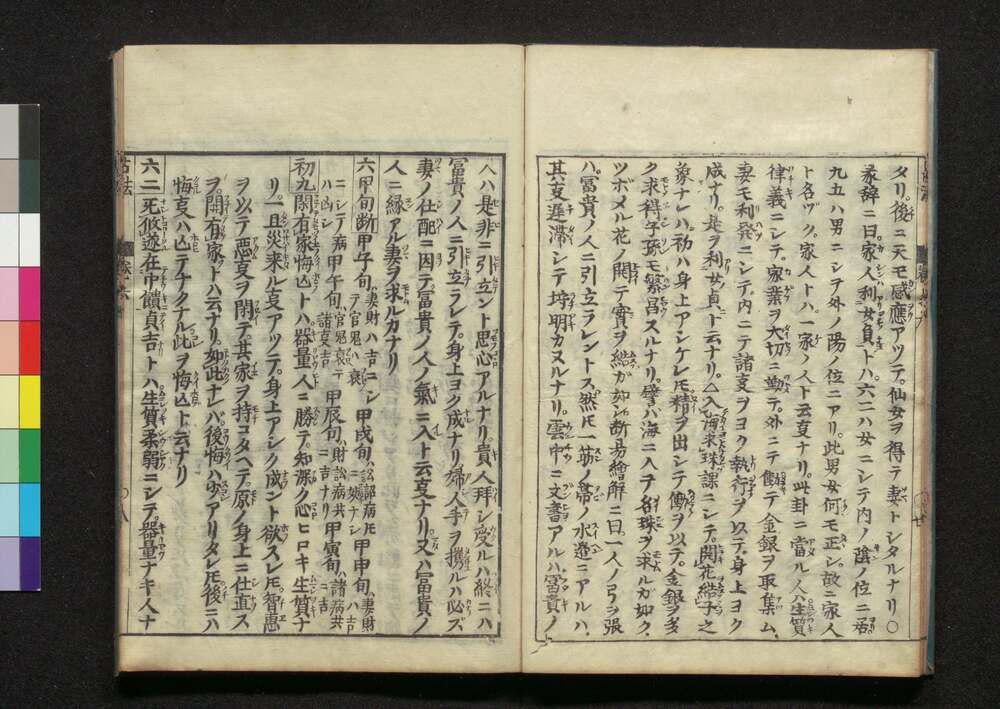 タリ。後ニ天モ感應アツテ。仙女ヲ得テ妻トシタルナリ○
彖辞ニ曰家人利女貞トハ。六二ハ女ニシテ内ノ陰ノ位ニ居
九五ハ男ニシテ外ノ陽ノ位ニアリ。此男女何モ正シ。故ニ家人
ト名ヅク。家人トハ。一家ノ人ト云支ナリ。此卦ニ當ル人ハ生質
律義ニシテ。家業ヲ大切ニ勤テ。外ニテ働テ金銀ヲ取集ム。
妻モ利發ニシテ。内ニテ諸支ヲヨク執行ヲ以テ。身上ヨク
成ナリ。是ヲ利女貞ト云ナリ。入海求珠課ニシテ。開花結子之
象ナレハ。初ハ身上アシケレ𪜈精ヲ出シテ働ヲ以テ。金銀ヲ多
ク求得。子孫モ繁昌スルナリ。譬バ海ニ入テ名珠ヲ求ルガ如ク。
ツボメル花ノ開テ實ヲ結ガ如シ断易繪解ニ曰。一人ノ弓ヲ張
ハ。冨貴ノ人ニ引立ラレントス。然𪜈一ノ帯ノ水邉ニアルハ。
其支遅滞シテ埓明カヌルナリ。雲中ニ文書アルハ。冨貴ノ
人ハ是非ニ引立ント思心アルナリ。貴人拜シ受ルハ終ニハ
冨貴ノ人ニ引立ラレテ。身上ヨク成ナリ。婦人手ヲ携ルハ必ズ
妻ノ仕配ニ因テ。冨貴ノ人ノ氣ニ入ト云支ナリ。又ハ冨貴ノ
人ニ縁アル妻ヲ求ルカナリ
六甲旬断 甲子旬 甲戌旬 甲申旬
甲午旬 甲辰旬 甲寅旬
初九閑有家悔亡トハ。器量人ニ勝テ。知深ク心ヒロキ生質ナ
リ。一旦災来ル支アツテ。身上アシク成ント欲スレ𪜈。智惠
ヲ以テ悪支ヲ閑テ其家ヲ持コタヘテ。原ノ身上ニ仕直ス
ヲ。閑有家ト云ナリ。如此ナレバ。後悔ハ少アリタレ𪜈。後ニハ
悔支ハ亡テナクナル。此ヲ悔亡ト云ナリ
六二无攸遂在中饋貞吉トハ生質柔弱ニシテ。器量ナキ人ナ